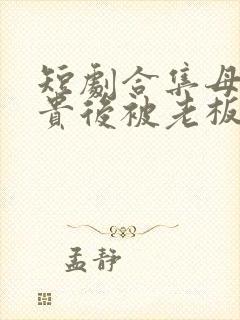 短劇合集母
貴後被老板
孟靜